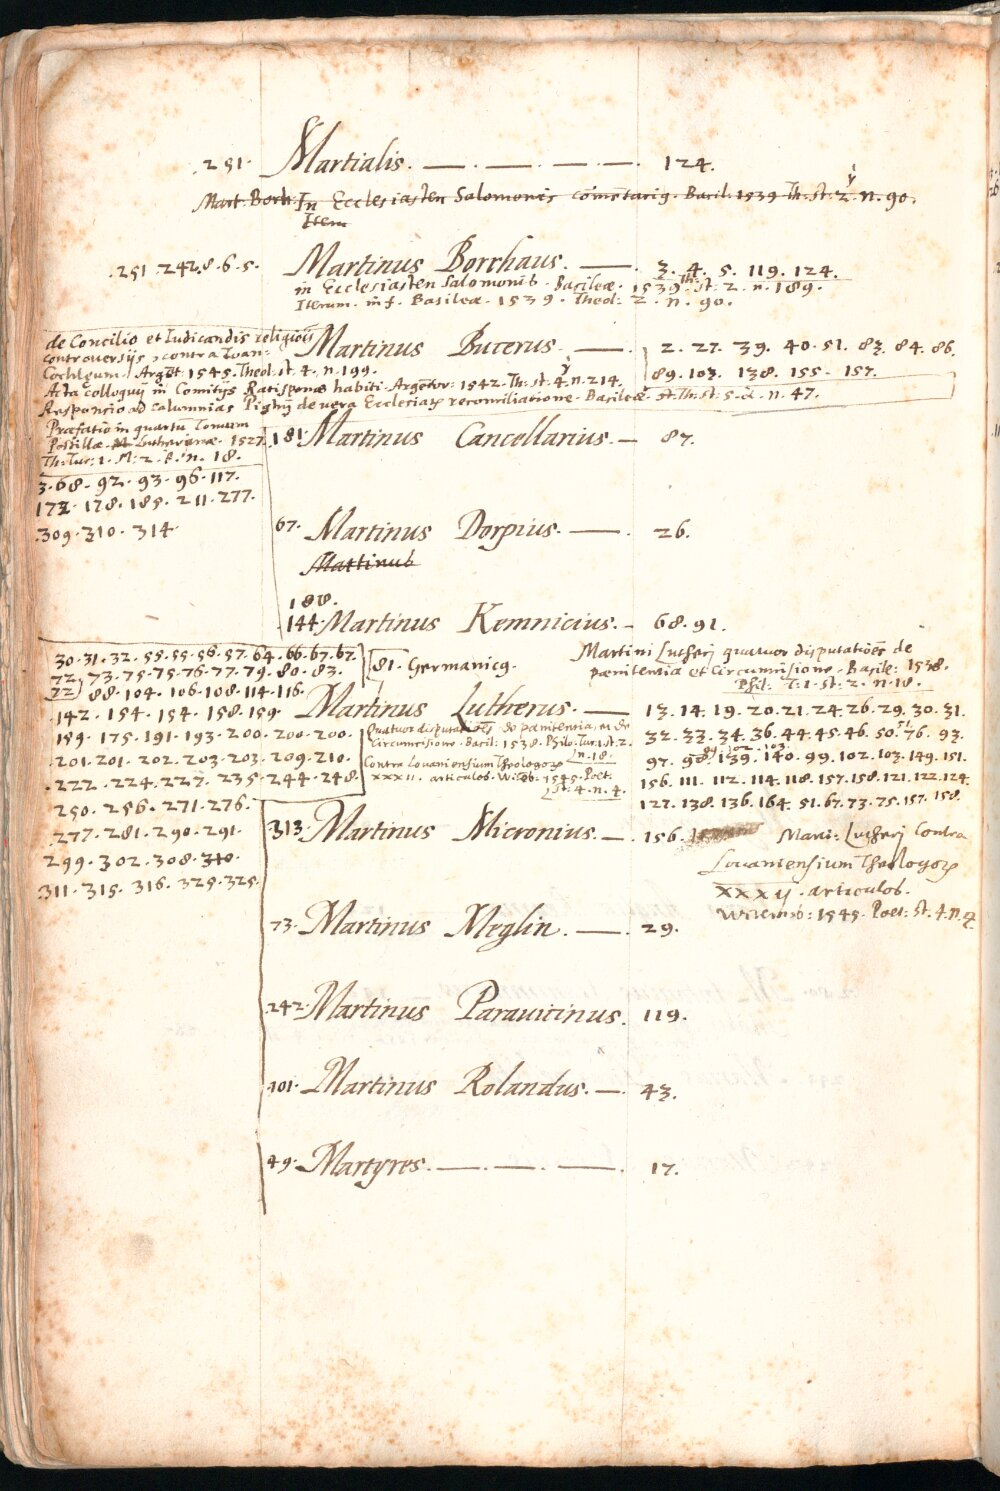 251. Martialis. — . — . — . — . 124.
Mart. Borh. In Ecclesiasten Salomonis comẽtarig. Basil. 1539 Th. st. 2. n. 90.
Item
.251 .242.8.6.5. Martinus Borrhaus. — . 3. 4. 5. 119. 124.
in Ecclesiasten Salomonis. Basileæ. 1539. Th: st: 2. n. 189.
Iterum. in f. Basileæ. 1539. Theol: 2. n. 90.
de Concilio et Iudicandis religiõis
controversijs, contra Ioan:
Martinus Bucerus. — . 2. 27. 39. 40. 51. 83. 84. 86.
Cochlęum. Argẽt. 1545. Theol. st. 4. n. 199.
89. 103. 138. 155. 157.
Acta colloquij in Comitijs Ratisponæ habiti. Argetor: 1542. Th: st. 4. n. 214.
Responcio ad calumnias Pighij de vera Ecclesiarꝝ reconciliatione. Basileæ. Th. st: 5. n. 47.
Præfatio in quartũ Tomum
Postillæ Lutheranæ. 1527.
Th: Tur: 1. M: 2. n. 18.
181. Martinus Cancellarius. — 87.
3. 68. 92. 93. 96. 117.
172. 178. 185. 211. 277.
309. 310. 314.
67. Martinus Dorpius. — . 26.
Martinus
188.
144. Martinus Kemnicius. — 68. 91.
Martini Lutherj quatuor disputatiões de
pænitentia et Circumcisione. Basile: 1538.
Phil: T. 1. st: 2. n. 18.
30. 31. 32. 55. 55. 56. 57. 64. 66. 67. 67.
72, 73. 75. 75. 76. 77. 79. 80. 83.
72) 88. 104. 106. 108. 114. 116.
81. Germanicg.
142. 154. 154. 158. 159. Martinus Lutherus. — 13. 14. 19. 20. 21. 24. 26. 29. 30. 31.
159. 175. 191. 193. 200. 200. 200.
Quatuor disputatiões de pænitentia, et de
Circumcisione. Basil: 1538. Philo. Tur. 1. st. 2.
n. 18.
32. 33. 34. 36. 44. 45. 46. 50. 51. 76. 93.
.201. 201. 202. 203. 203. 209. 210.
Contra Louaniensium Theologorꝝ
97. 98. 102. 103. 139. 140. 99. 102. 103. 149. 151.
.222. 224. 227. 235. 244. 248.
XXXII. articulos. Witeb: 1545. Poet.
st: 4. n. 4.
156. 111. 112. 114. 118. 157. 158. 121. 122. 124.
127. 138. 136. 164. 51. 67. 73. 75. 157. 158.
250. 256. 271. 276.
.277. 281. 290. 291.
313. Martinus Micronius. — . 156.
Marti: Lutherj Contra
299. 302. 308. 310.
Louaniensium Theologorꝝ
.311. 315. 316. 325. 325.
XXXIJ. articulos.
Witemb: 1545. Poet: st. 4. n. 4.
73. Martinus Meglin. — . 29.
242. Martinus Parauitinus. 119.
101. Martinus Rolandus. — . 43.
49. Martyres. — . — . — . 17.